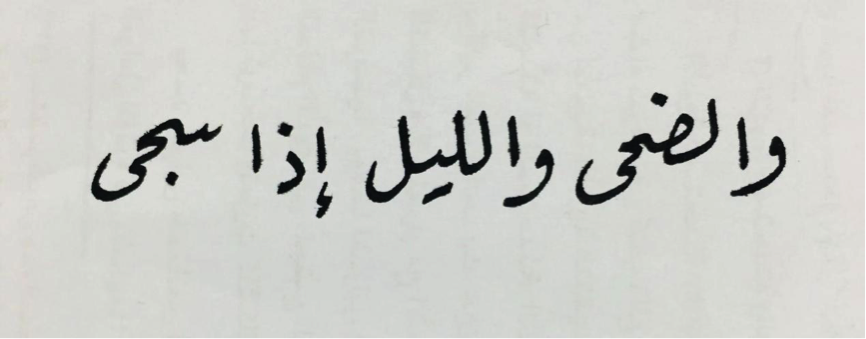 والضحى والليل إذا سجى